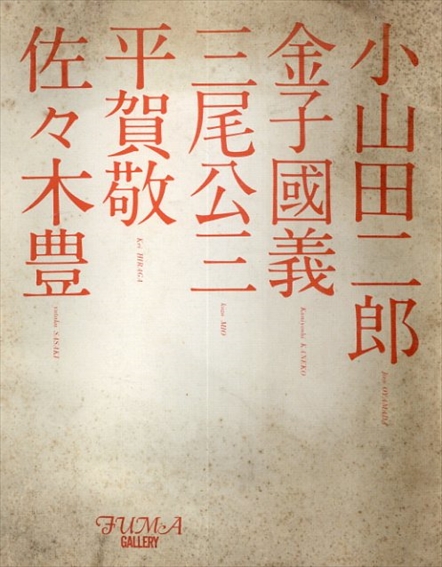 小山田二郎
Jiro OYAMADA
金子國義
Kuniyoshi KANEKO
三尾公三
kozo MIO
平賀敬
Kei HIRAGA
佐々木豊
yutaka SASAKI
FUMA
GALLERY